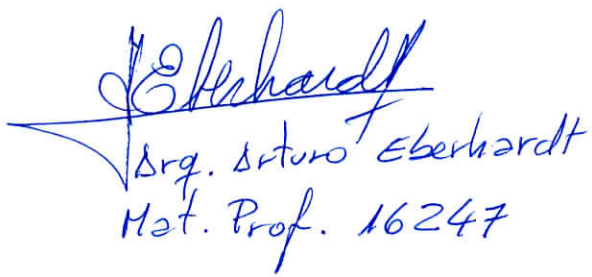 Eberhardt
Arq. Arturo Eberhardt
Mat. Prof. 16247